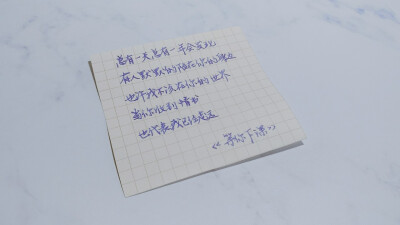 总有一天总有一年会发现
有人默默的陪在你的身边
也许我不该在你的世界
当你收到情书
也代表我已经走远
《等你下课》